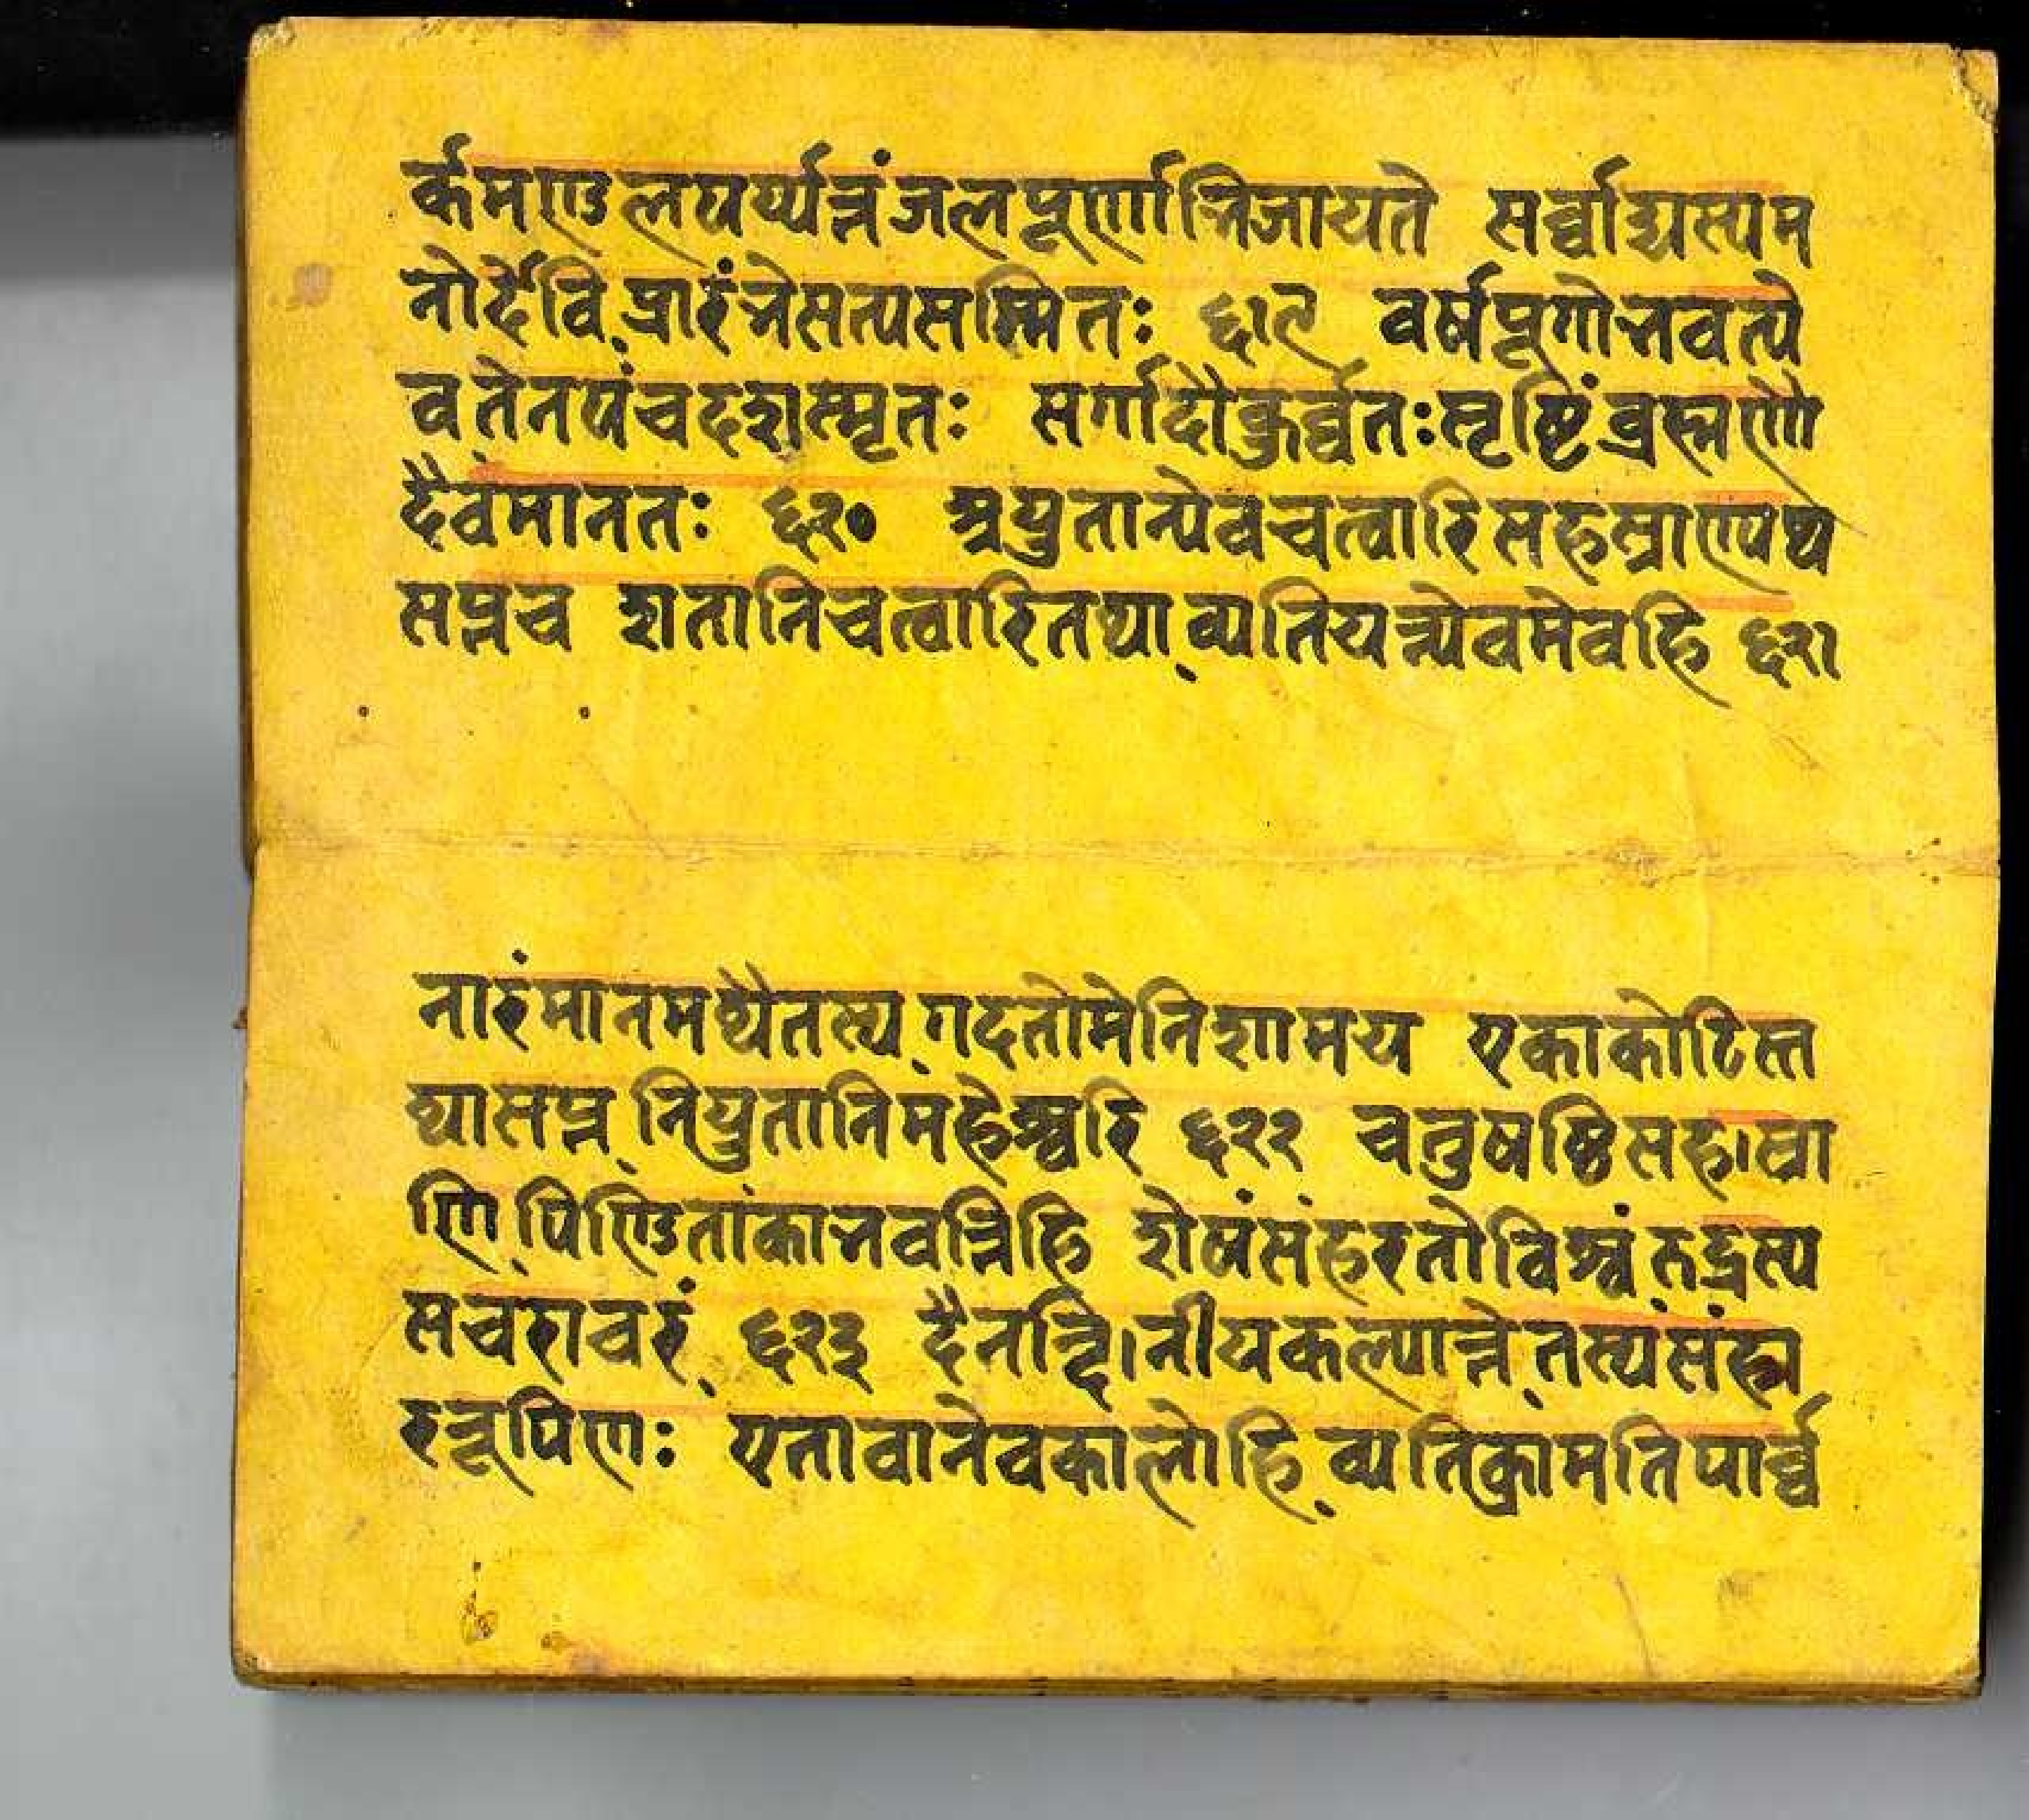 र्कमण्डलपर्य्यन्तंजलपूर्णाभिजायते सर्व्वाद्यस्यम
नोर्देवि प्रारंभेसत्यसम्मितः ६१९ वर्षपूगोनवत्ये
वतेनपंचदशस्मृतः सर्गादौकुर्व्वतःसृष्टिंब्रह्मणो
दैवमानतः ६२० अयुतान्येवचत्वारिसहस्राण्यथ
सप्तच शतानिचत्वारितथाव्यतियन्त्येवमेवहि ६२१
नारंमानमथैतस्य गदतोमेनिशामय एकाकोटिस्त
थासप्त नियुतानिमहेश्वरि ६२२ चतुषष्ठिसहास्रा
णि पिण्डितांकानवन्तिहि शेषंसंहरतोविश्वं रुद्रस्य
सचराचरं ६२३ दैनन्दिनीयकल्पान्ते तस्यसंहा
ररूपिणः एतावानेवकालोहि व्यतिक्रामतिपार्व्व